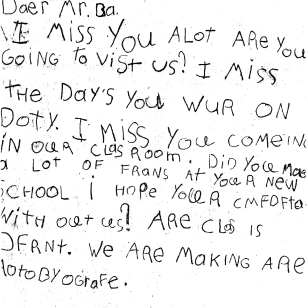 Daer Mr. Ba.
I MISS YOU ALOT ARe you
GOING to VIST US? I MISS
tHE DAY'S YOU WUR ON
DOTY. I MISS You COMEING
IN OUR CLAS ROOM. DiD YOU Mae
a LOT OF FRANS At YOUR NEW
SCHOOL i HOPE YOUR CMFDFta
With out us? ARE CLaS IS
DFRNt. WE ARE MAKING ARE
OtOBYOGRAFe.